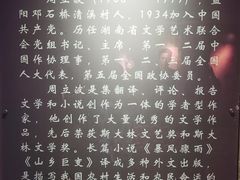 周立波
阳邓石桥清溪村人，1934加入中国
共产党。历任湖南省文学艺术联合
会党组书记、主席，第一、二届中
国作协理事，第一、二、三届全国
人大代表，第五届全国政协委员。
周立波是集翻译、评论、报告
文学和小说创作为一体的学者型作
家，他创作了大量优秀的文学作
品，先后荣获斯大林文艺奖和斯大
林文学奖。长篇小说《暴风骤雨》
《山乡巨变》译成多种外文出版，
是描写我国农村生活和农民命运的